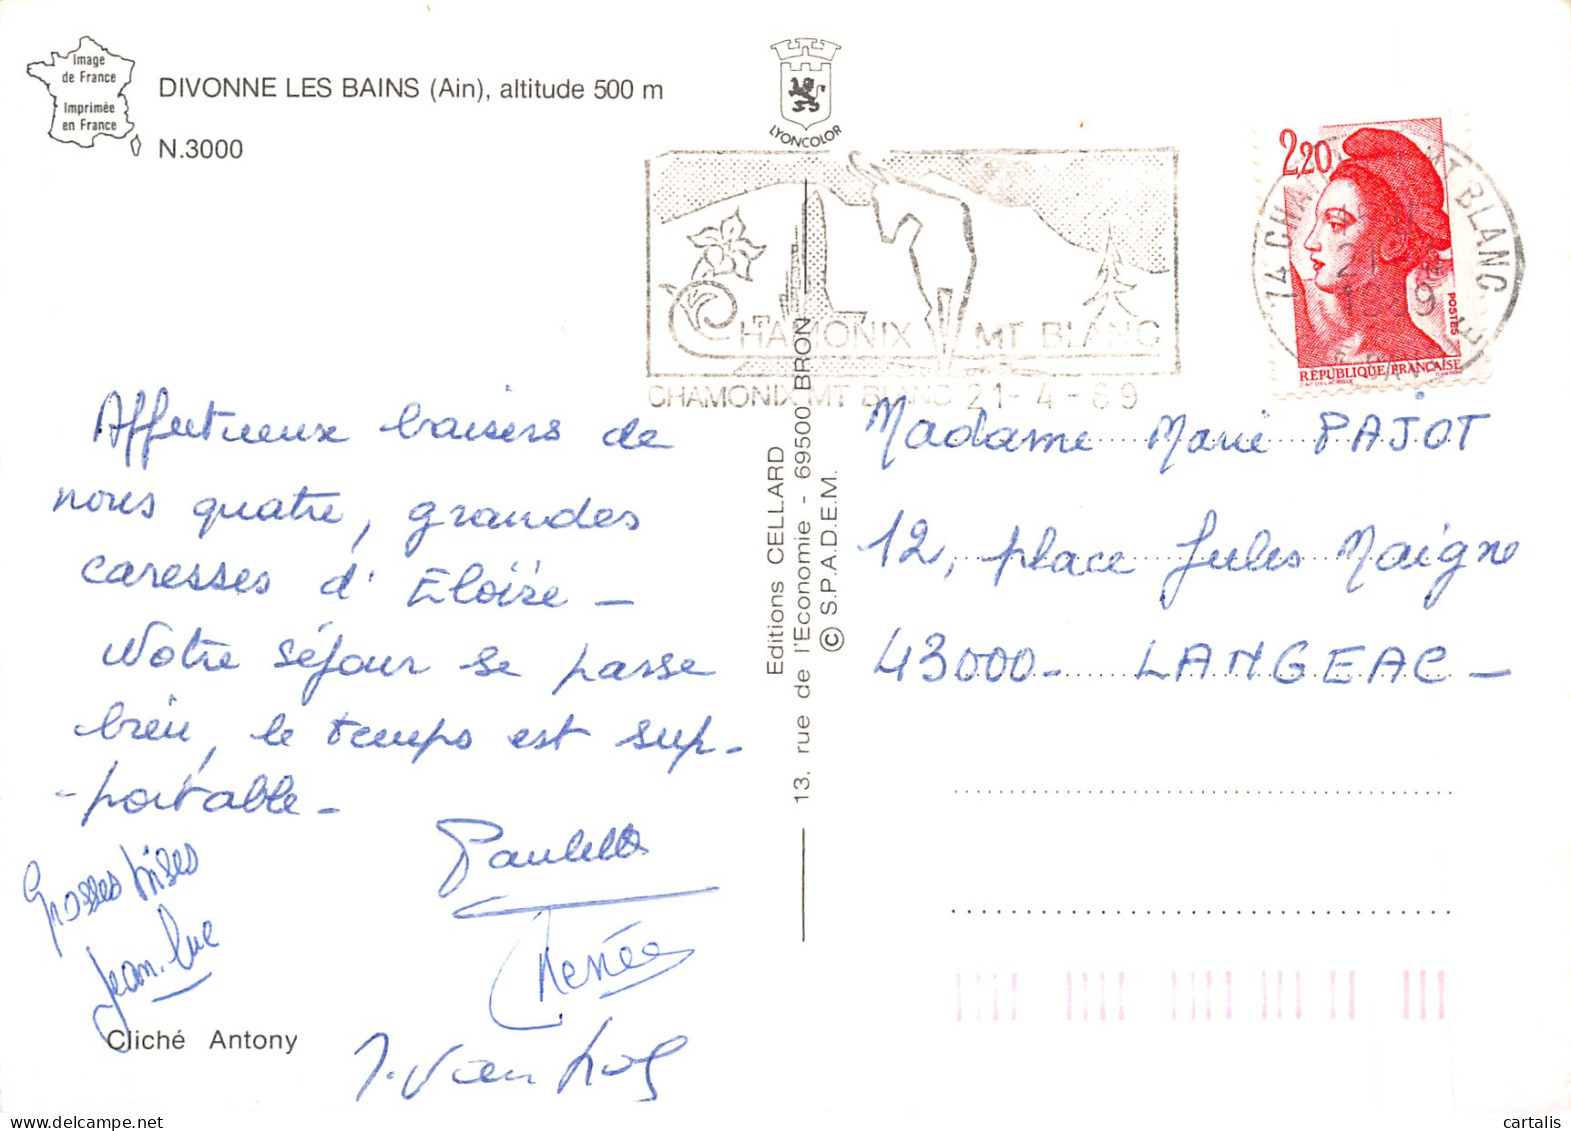 Image
de France
Imprimée
en France
DIVONNE LES BAINS (Ain), altitude 500 m
N.3000
LYONCOLOR
CHAMONIX MT BLANC
CHAMONIX MT BLANC 21-4-89
2,20
POSTES
RÉPUBLIQUE FRANÇAISE
MT BLANC
Affectueux baisers de
nous quatre, grandes
caresses d'Eloïse -
Notre séjour se passe
bien, le temps est sup-
-portable -
Paulette
Grosses bises
Jean-Luc
Renée
Cliché Antony
Editions CELLARD
13, rue de l'Economie - 69500 BRON
© S.P.A.D.E.M.
Madame Marie PAJOT
12, place Jules Maigne
43000 - LANGEAC -
cartalis